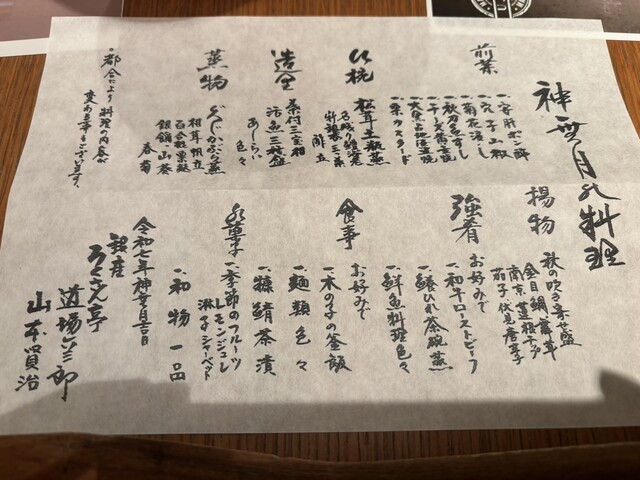 神無月の料理
前菜
一、安肝ポン酢
一、穴子山椒
一、菊花浸し
一、秋刀魚すし
一、栗カスタード
松茸土瓶蒸
酢立
造里
活魚三種盛
あしらい
色々
蒸物
ぐじかぶら蒸
相茸 帆立
百合根 栗麩
銀餡 山葵
春菊
・都合により料理の内容が
変わる事もございます。
揚物
秋の吹き寄せ盛
金目鯛 舞茸
南京 蓮根チップ
茄子 伏見唐辛子
強肴
お好みで
一、和牛ローストビーフ
一、鱶ひれ茶碗蒸
一、鮮魚料理色々
食事
お好みで
一、木の子の釜飯
一、麺類色々
一、鯖茶漬
水菓子
一、季節のフルーツ
レモンジュレ
淋子シャーベット
一、和物一品
令和七年神無月吉日
銀座
ろくさん亭
道場六三郎
山本賢治